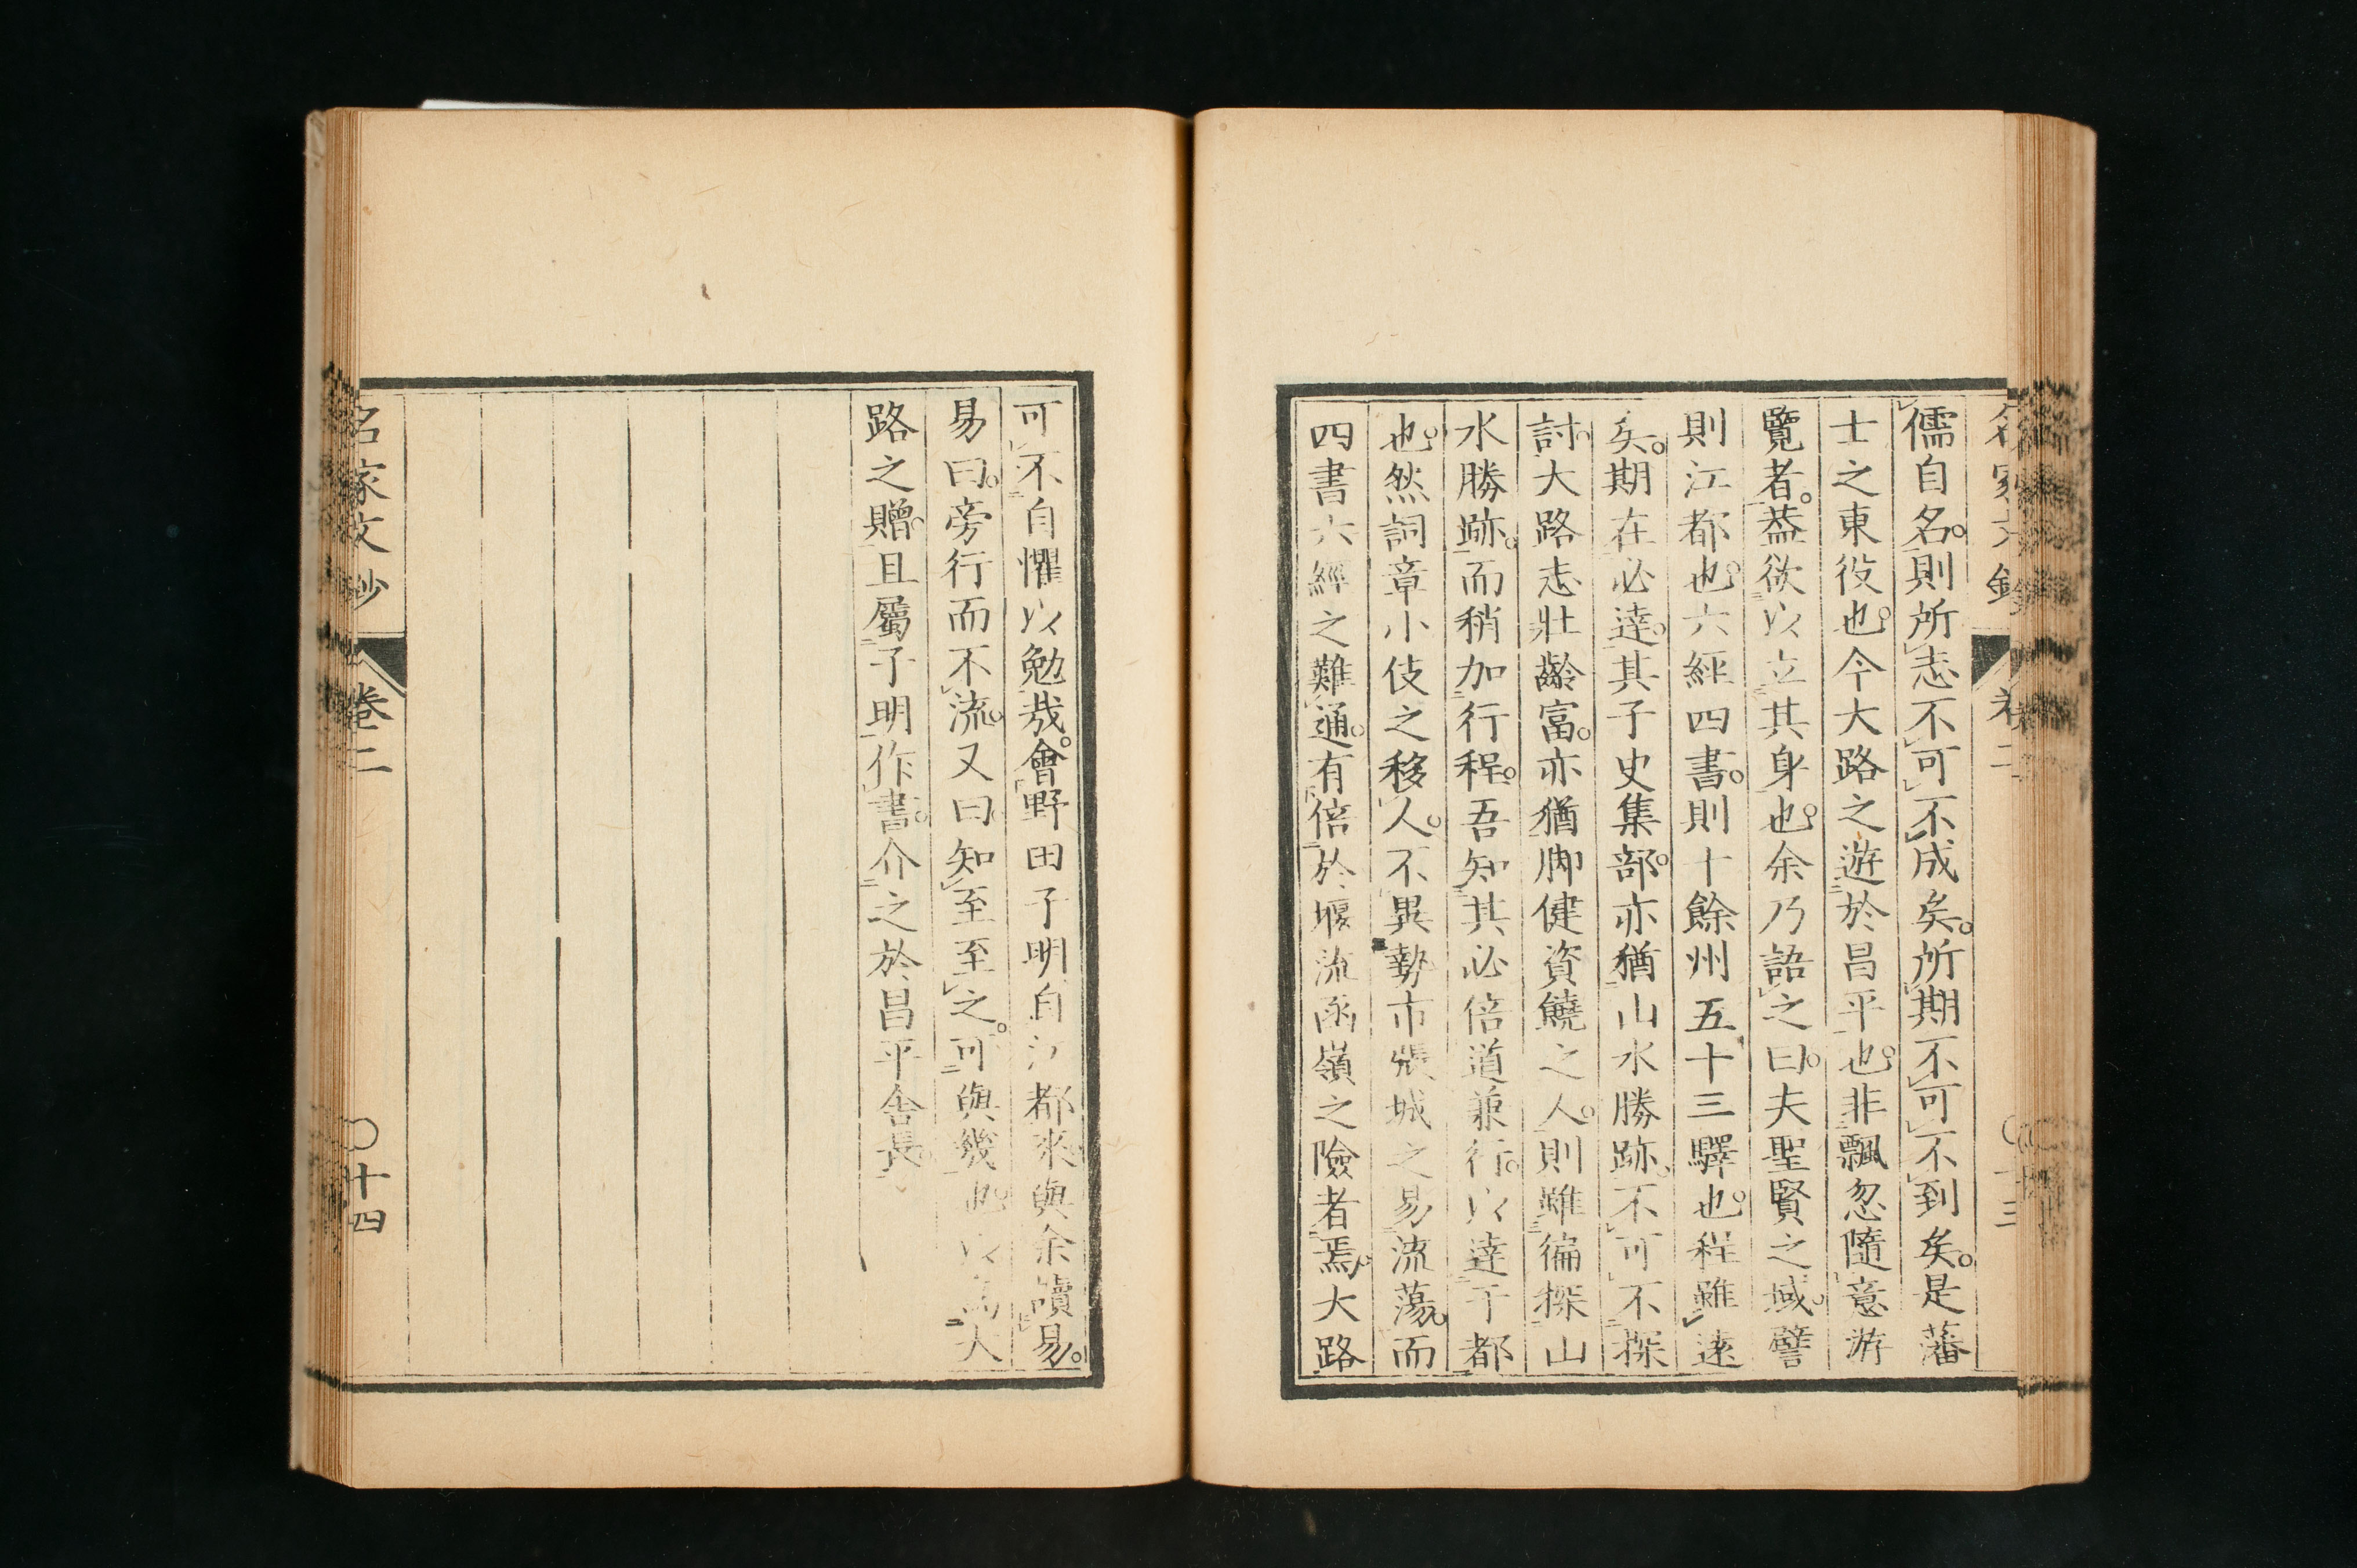 儒自名。則所志不可不成矣。所期不可不到矣。是藩
士之東役也。今大路之遊於昌平也。非飄忽隨意游
覽者。葢欲以立其身也。余乃語之曰。夫聖賢之域。譬
則江都也。六經四書。則十餘州五十三驛也。程雖遠
矣。期在必達。其子史集部。亦猶山水勝跡。不可不探
討。大路志壯齡富。亦猶脚健資饒之人。則雖徧探山
水勝跡。而稍加行程。吾知其必倍道兼行。以達于都
也。然詞章小伎之移人。不異勢市張城之易流蕩。而
四書六經之難通。有倍於堰流函嶺之險者焉。大路
可不自懼以勉哉。會野田子明自江都來與余讀易。
易曰。旁行而不流。又曰。知至至之。可與幾也。以爲大
路之贈。且屬子明作書。介之於昌平舎長。
名家文鈔
卷二
〇十四